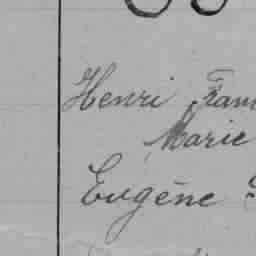 Henri Fran
Marie
Eugène